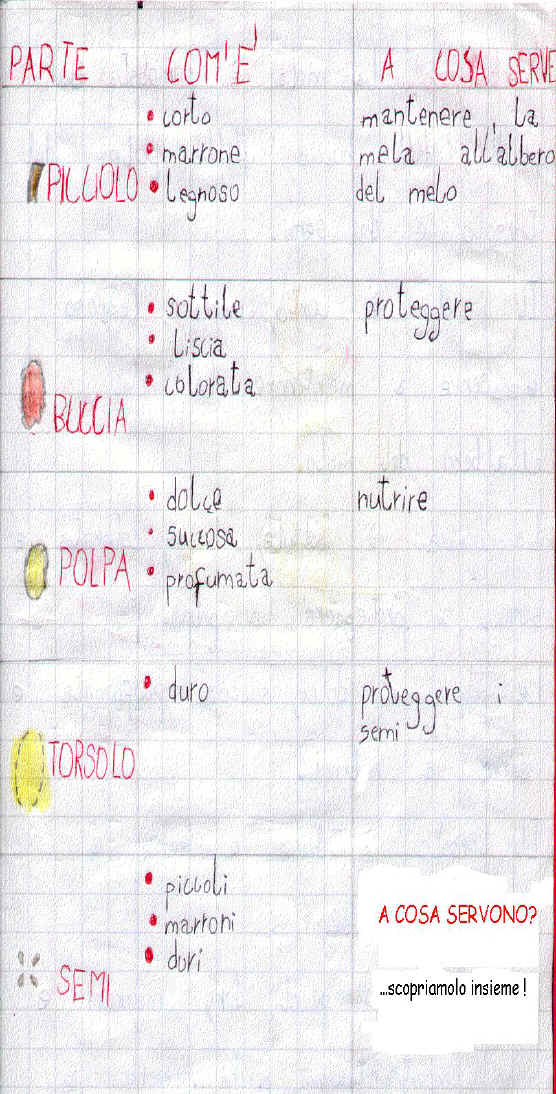 PARTE COM'E' A COSA SERVE
PICCIOLO
• corto
• marrone
• legnoso
mantenere, la
mela all'albero
del melo
BUCCIA
• sottile
• liscia
• colorata
proteggere
POLPA
• dolce
• succosa
• profumata
nutrire
TORSOLO
• duro
proteggere i
semi
SEMI
• piccoli
• marroni
• duri
A COSA SERVONO?
...scopriamolo insieme !